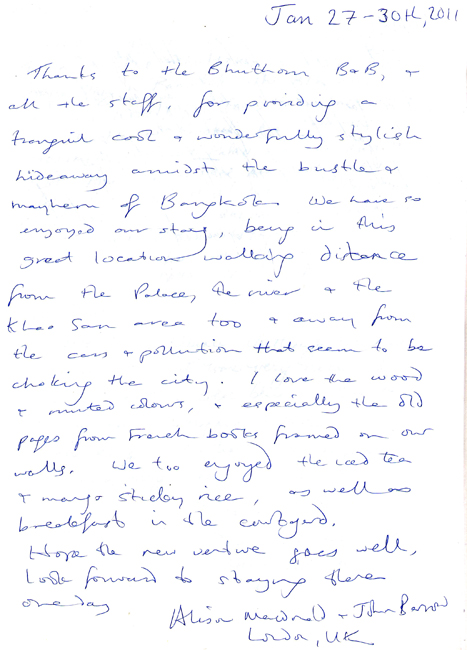 Jan 27-30th, 2011
Thanks to the Bhuthorn B&B, +
all the staff, for providing a
tranquil cool + wonderfully stylish
hideaway amidst the bustle +
mayhem of Bangkok. We have so
enjoyed our stay, being in this
great location walking distance
from the Palace, the river + the
Khao San area too + away from
the cars + pollution that seem to be
choking the city. I love the wood
+ muted colours, + especially the old
pages from French books framed on our
walls. We too enjoyed the iced tea
+ mango sticky rice, as well as
breakfast in the courtyard.
Hope the new venture goes well,
Look forward to staying there
one day
Alison Macdonald + John Barrow
London, UK